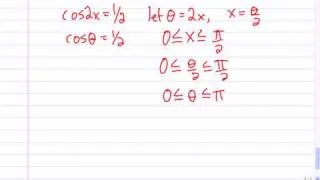 cos2x = 1/2 let θ = 2x, x = θ/2
cosθ = 1/2 0 ≤ x ≤ π/2
0 ≤ θ/2 ≤ π/2
0 ≤ θ ≤ π